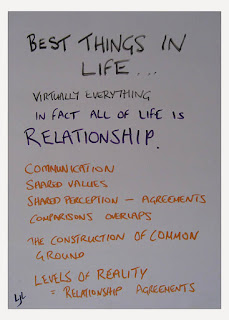 BEST THINGS IN
LIFE...
VIRTUALLY EVERYTHING
IN FACT ALL OF LIFE IS
RELATIONSHIP.
COMMUNICATION
SHARED VALUES
SHARED PERCEPTION - AGREEMENTS
COMPARISONS OVERLAPS
THE CONSTRUCTION OF COMMON
GROUND
LEVELS OF REALITY
= RELATIONSHIP AGREEMENTS